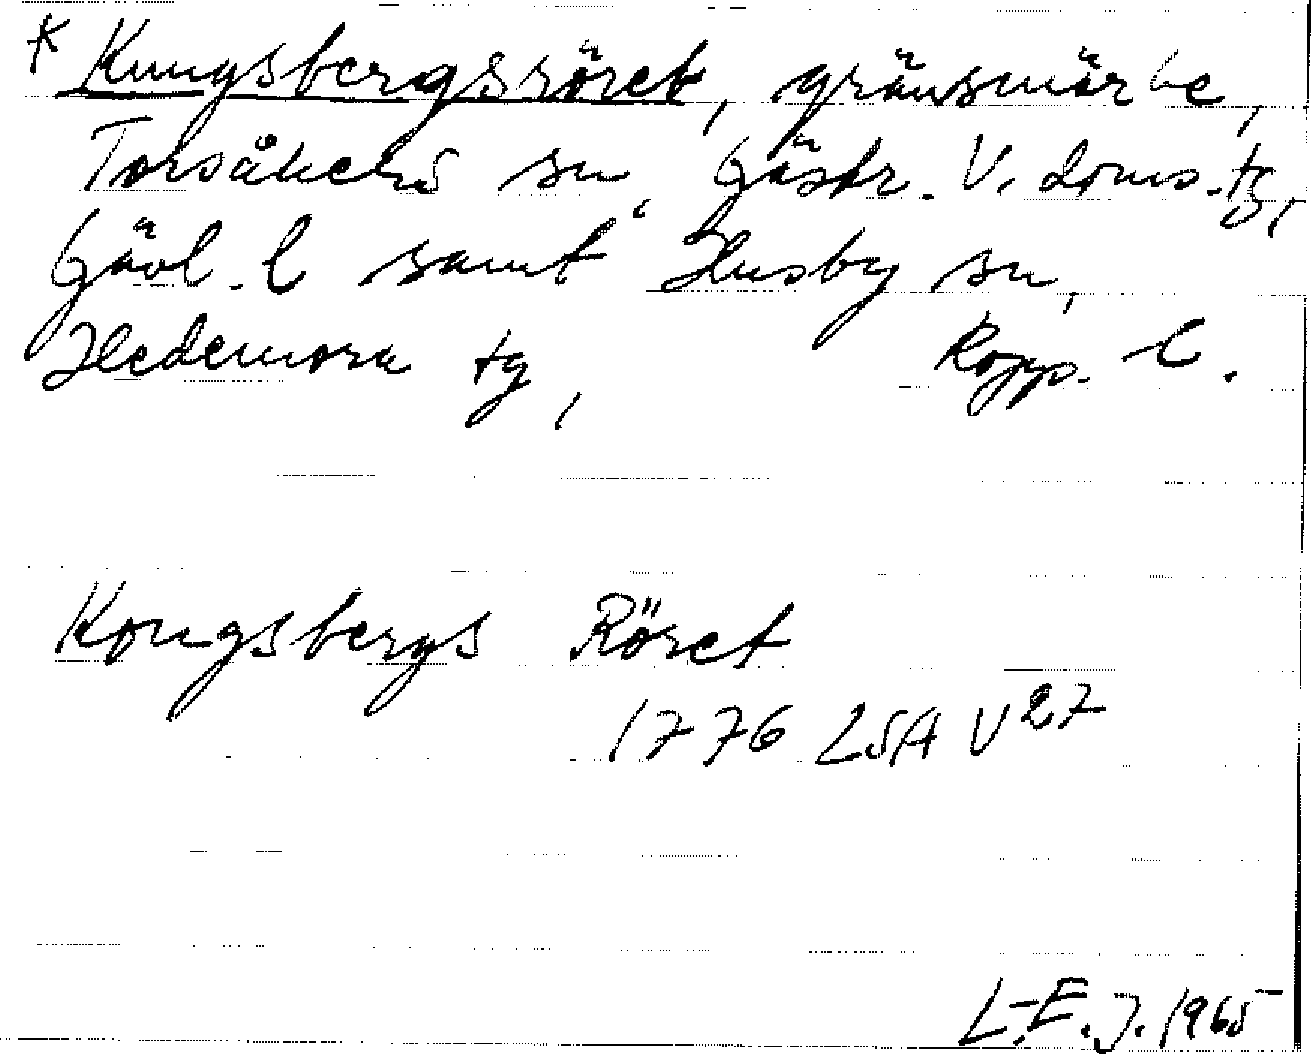 * Kungsbergsröret, gränsmärke,
Torsåkers sn, Gästr. V. doms. tg,
Gävl. l samt Husby sn,
Hedemora tg, Kopp. l.
Kongsbergs Röret
1776 LSA V 27
L-E. J. 1965